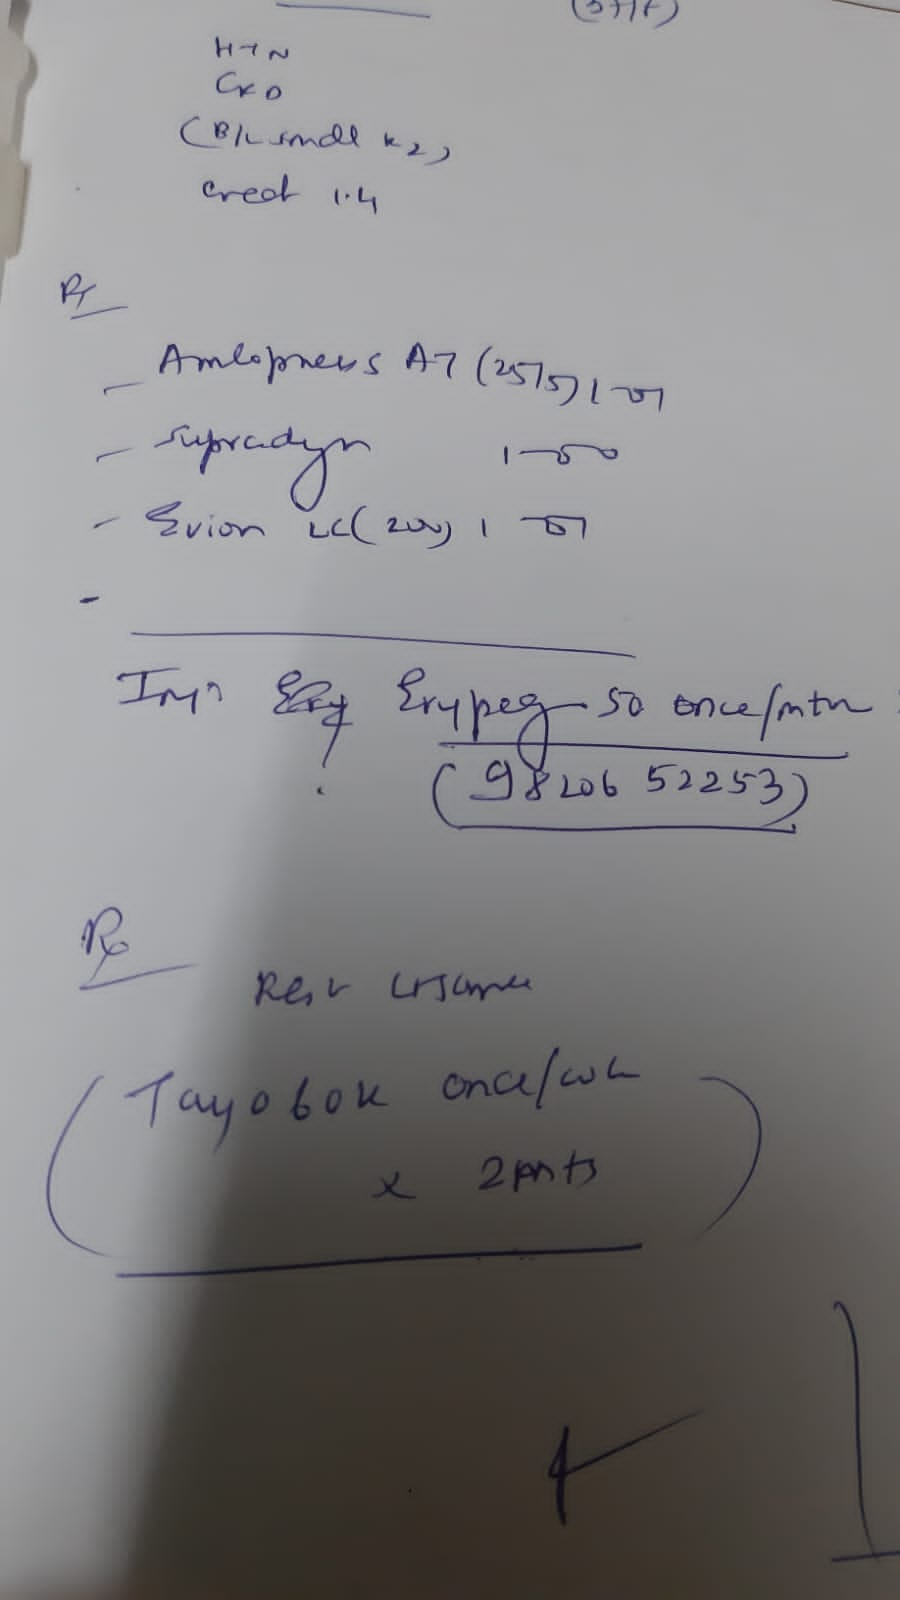 HTN
CKD
(B/L small k2s)
Creat 1.4
Rx
- Amlopress AT (25/5) 1-01
- Supradyn 1-00
- Evion LC (200) 1-01
-
Inj. Erypeg 50 once/mth
(98206 52253)
Rx
Rest
Tayo 60K once/wk
x 2 mts